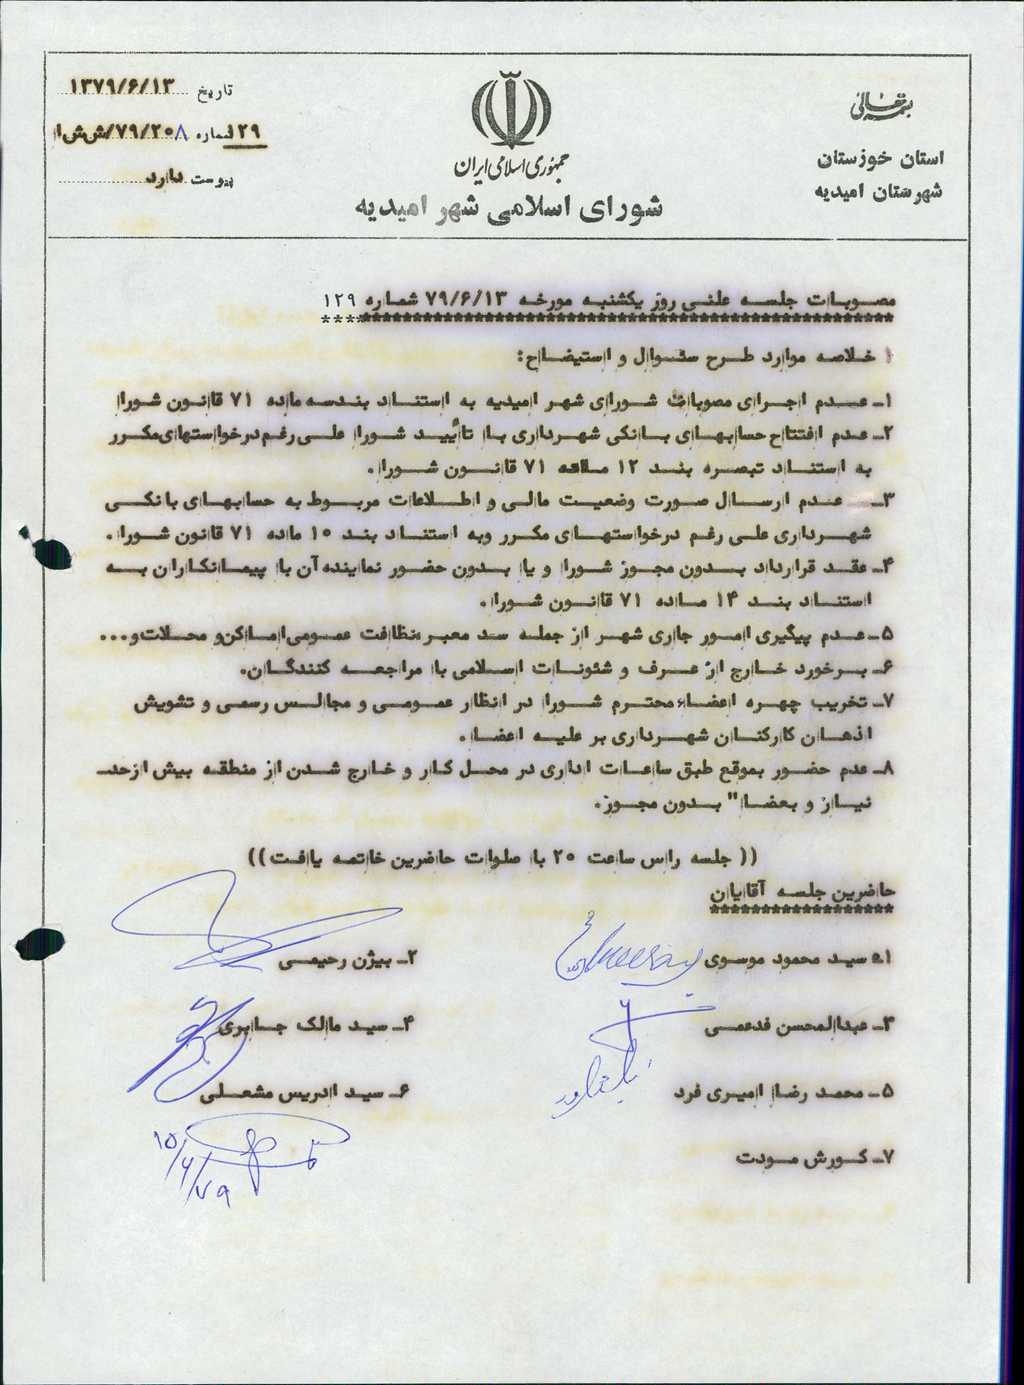 بسمه تعالی
استان خوزستان
شهرستان امیدیه
جمهوری اسلامی ایران
شورای اسلامی شهر امیدیه
تاریخ ۱۳۷۹/۶/۱۳
شماره ۷۹/۲۰۸/ش ش ا
۱۲۹
پیوست دارد
مصوبات جلسه علنی روز یکشنبه مورخه ۷۹/۶/۱۳ شماره ۱۲۹
************************************************
خلاصه موارد طرح سئوال و استیضاح:
۱ـ عدم اجرای مصوبات شورای شهر امیدیه به استناد بندسه ماده ۷۱ قانون شورا
۲ـ عدم افتتاح حسابهای بانکی شهرداری با تأیید شورا علی رغم درخواستهای مکرر
به استناد تبصره بند ۱۲ ماده ۷۱ قانون شورا.
۳ـ عدم ارسال صورت وضعیت مالی و اطلاعات مربوط به حسابهای بانکی
شهرداری علی رغم درخواستهای مکرر وبه استناد بند ۱۰ ماده ۷۱ قانون شورا.
۴ـ عقد قرارداد بدون مجوز شورا و یا بدون حضور نماینده آن با پیمانکاران به
استناد بند ۱۴ ماده ۷۱ قانون شورا.
۵ـ عدم پیگیری امور جاری شهر از جمله سد معبر،نظافت عمومی،اماکن و محلات و...
۶ـ برخورد خارج از عرف و شئونات اسلامی با مراجعه کنندگان.
۷ـ تخریب چهره اعضاء محترم شورا در انظار عمومی و مجالس رسمی و تشویش
اذهان کارکنان شهرداری بر علیه اعضا.
۸ـ عدم حضور بموقع طبق ساعات اداری در محل کار و خارج شدن از منطقه بیش ازحد
نیاز و بعضا" بدون مجوز.
(( جلسه راس ساعت ۲۰ با صلوات حاضرین خاتمه یافت))
حاضرین جلسه آقایان
*****************
۱ـ سید محمود موسوی
۲ـ بیژن رحیمی
۳ـ عبدالمحسن فدعمی
۴ـ سید مالک جابری
۵ـ محمد رضا امیری فرد
۶ـ سید ادریس مشعلی
۷ـ کورش مودت
۱۵/۶/۷۹